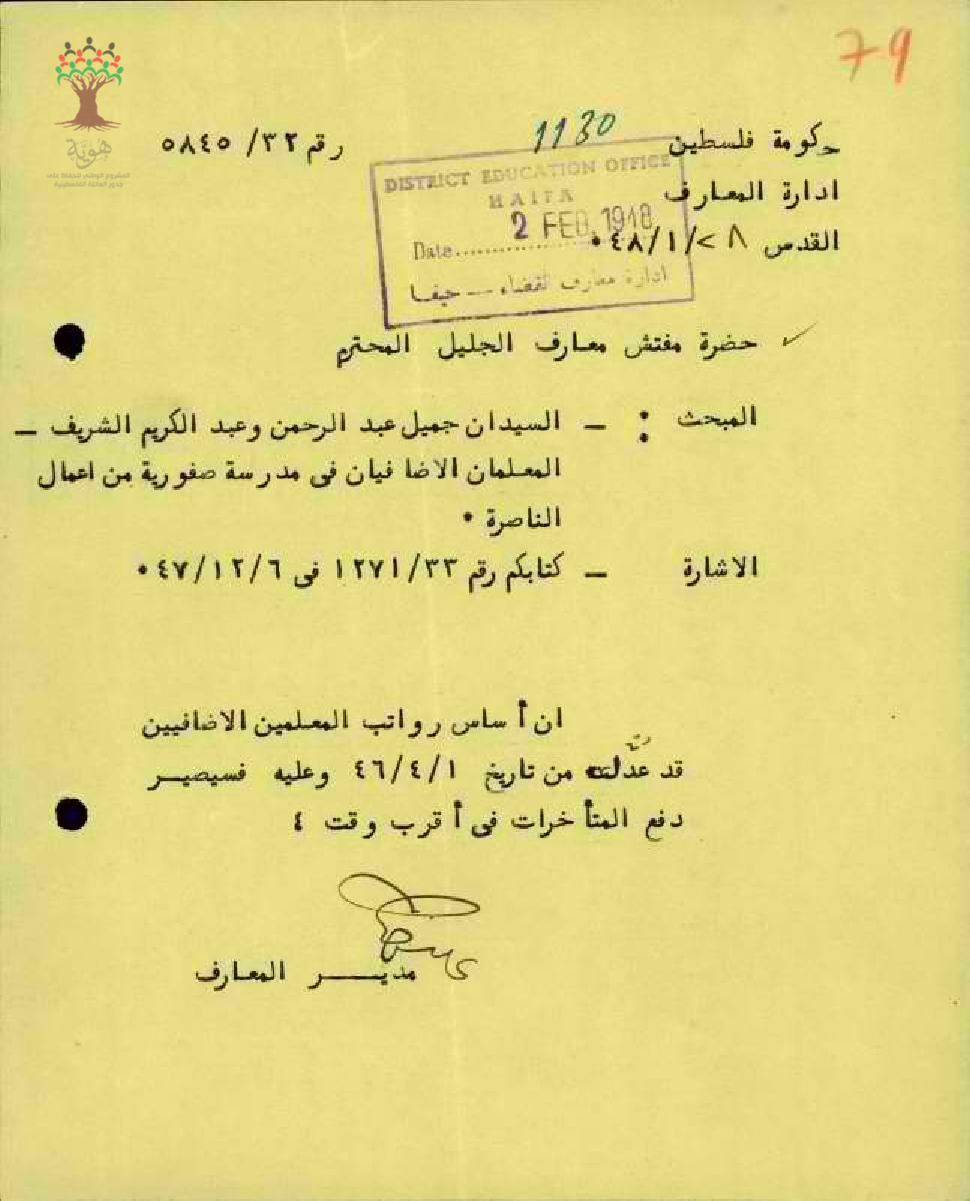 79
هوية
المشروع الوطني للحفاظ على
جذور العائلة الفلسطينية
1130
حكومة فلسطين
رقم ٣٢/ ٥٨٤٥
ادارة المعارف
القدس ٢٨/١/٤٨٠
DISTRICT EDUCATION OFFICE
HAIFA
2 FEB 1948
Date
ادارة معارف القضاء — حيفا
حضرة مفتش معارف الجليل المحترم
المبحث : — السيدان جميل عبد الرحمن وعبد الكريم الشريف —
المعلمان الاضافيان فى مدرسة صفورية من اعمال
الناصرة ٠
الاشارة — كتابكم رقم ١٢٧١/٣٣ فى ٤٧/١٢/٦ ٠
ان أساس رواتب المعلمين الاضافيين
قد عدلت من تاريخ ٤٦/٤/١ وعليه فسيصير
دفع المتأخرات فى أقرب وقت ٤
مديـــر المعارف